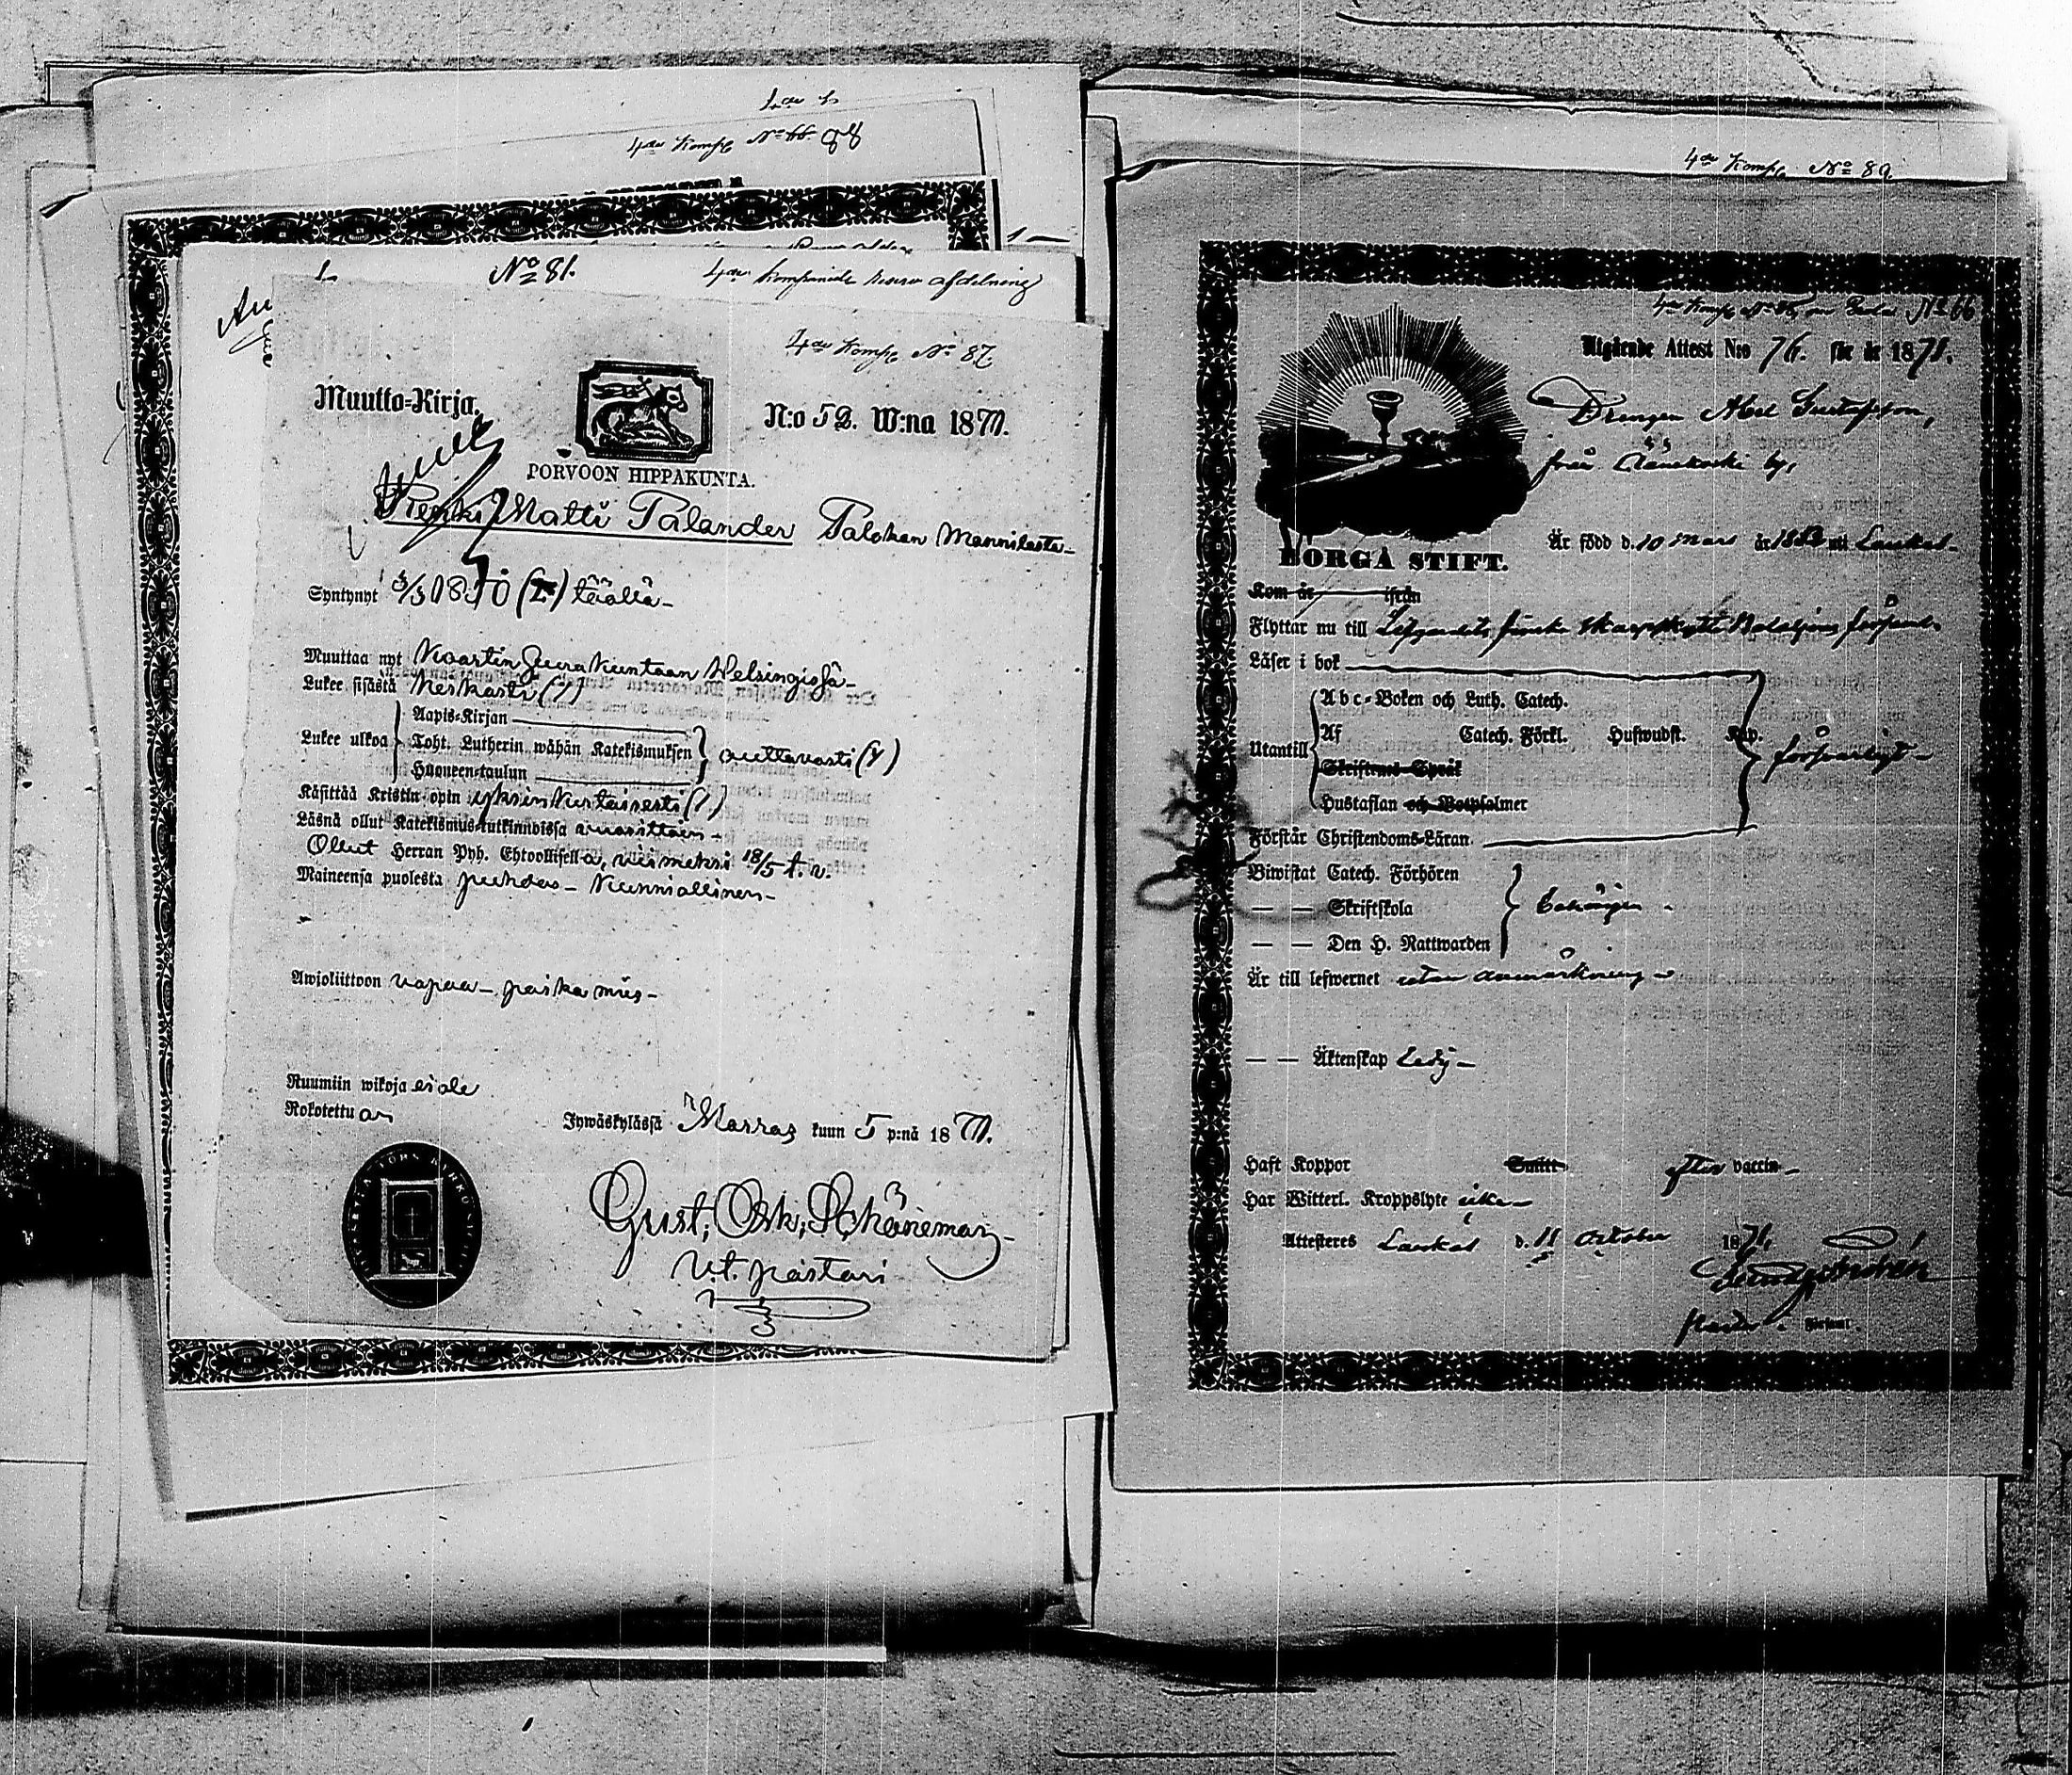 4de Komp. No 66. 88
1. No 81. 4de Kompanids reserv afdelning
4de Komp. No 87.
Muutto-Kirja. N:o 52. W:na 1871.
PORVOON HIPPAKUNTA.
Renki Matti Palander Palokan Mannilasta
Syntynyt 3/3 1850 (Z) täällä
Muuttaa nyt Kaartin Seurakuntaan Helsingissä
Lukee sisästä keskasti (/)
Lukee ulkoa
Aapis-Kirjan
Toht. Lutherin wähän Katekismuksen auttavasti (Y)
Huoneen-taulun
Käsittää Kristin-opin yksinkertaisesti (/)
Läsnä ollut Katekismus-tutkinnoissa
Ollut Herran Pyh. Ehtoollisella, viimeksi 18/5 t. v.
Maineensa puolesta puhdas - Kunniallinen
Awioliittoon vapaa - poika mies
Ruumiin wikoja ei ole
Rokotettu on
Jywäskylässä Marras kuun 5 p:nä 1871.
Gust. Osk. Schöneman
v.t. pastori
4de Komp. No 89
4de Komp. No 66
Utgående Attest N:o 76. för år 1871.
Drengen Abel Gustafsson,
från Äänekoski by,
BORGÅ STIFT.
Är född d. 10 Mars år 1852 uti Laukas
Kom år ifrån
Flyttar nu till Lifgardets finska skarpskytte Bataljons församl.
Läser i bok
Utantill
Abc-Boken och Luth. Catech.
Af Catech. Förkl. Hufwudst. Kap. försvarligt
Skriftens Språk
Hustaflan och Botpsalmer
Förstår Christendoms-Läran
Biwistat Catech. Förhören
— — Skriftskola
— — Den H. Nattwarden
Är till lefwernet utan anmärkning
— — Äktenskap Ledig
Haft Koppor Smitt efter vaccin
Har Witterl. Kroppslyte icke
Attesteres Laukas d. 11 October 1871,